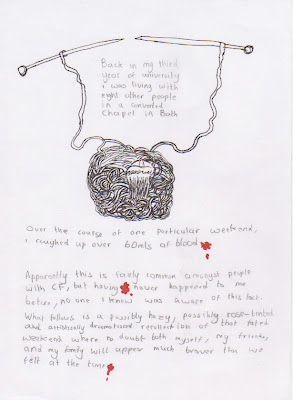 Back in my third
year of university
i was living with
eight other people
in a converted
Chapel in Bath
Over the course of one particular weekend,
i coughed up over 60mls of blood.
Apparently this is fairly common amongst people
with CF, but having never happened to me
before, no one i knew was aware of this fact.
What follows is a possibly hazy, possibly rose-tinted
and artistically dramatised recollection of that fated
weekend where no doubt both myself, my friends,
and my family will appear much braver than we
felt at the time